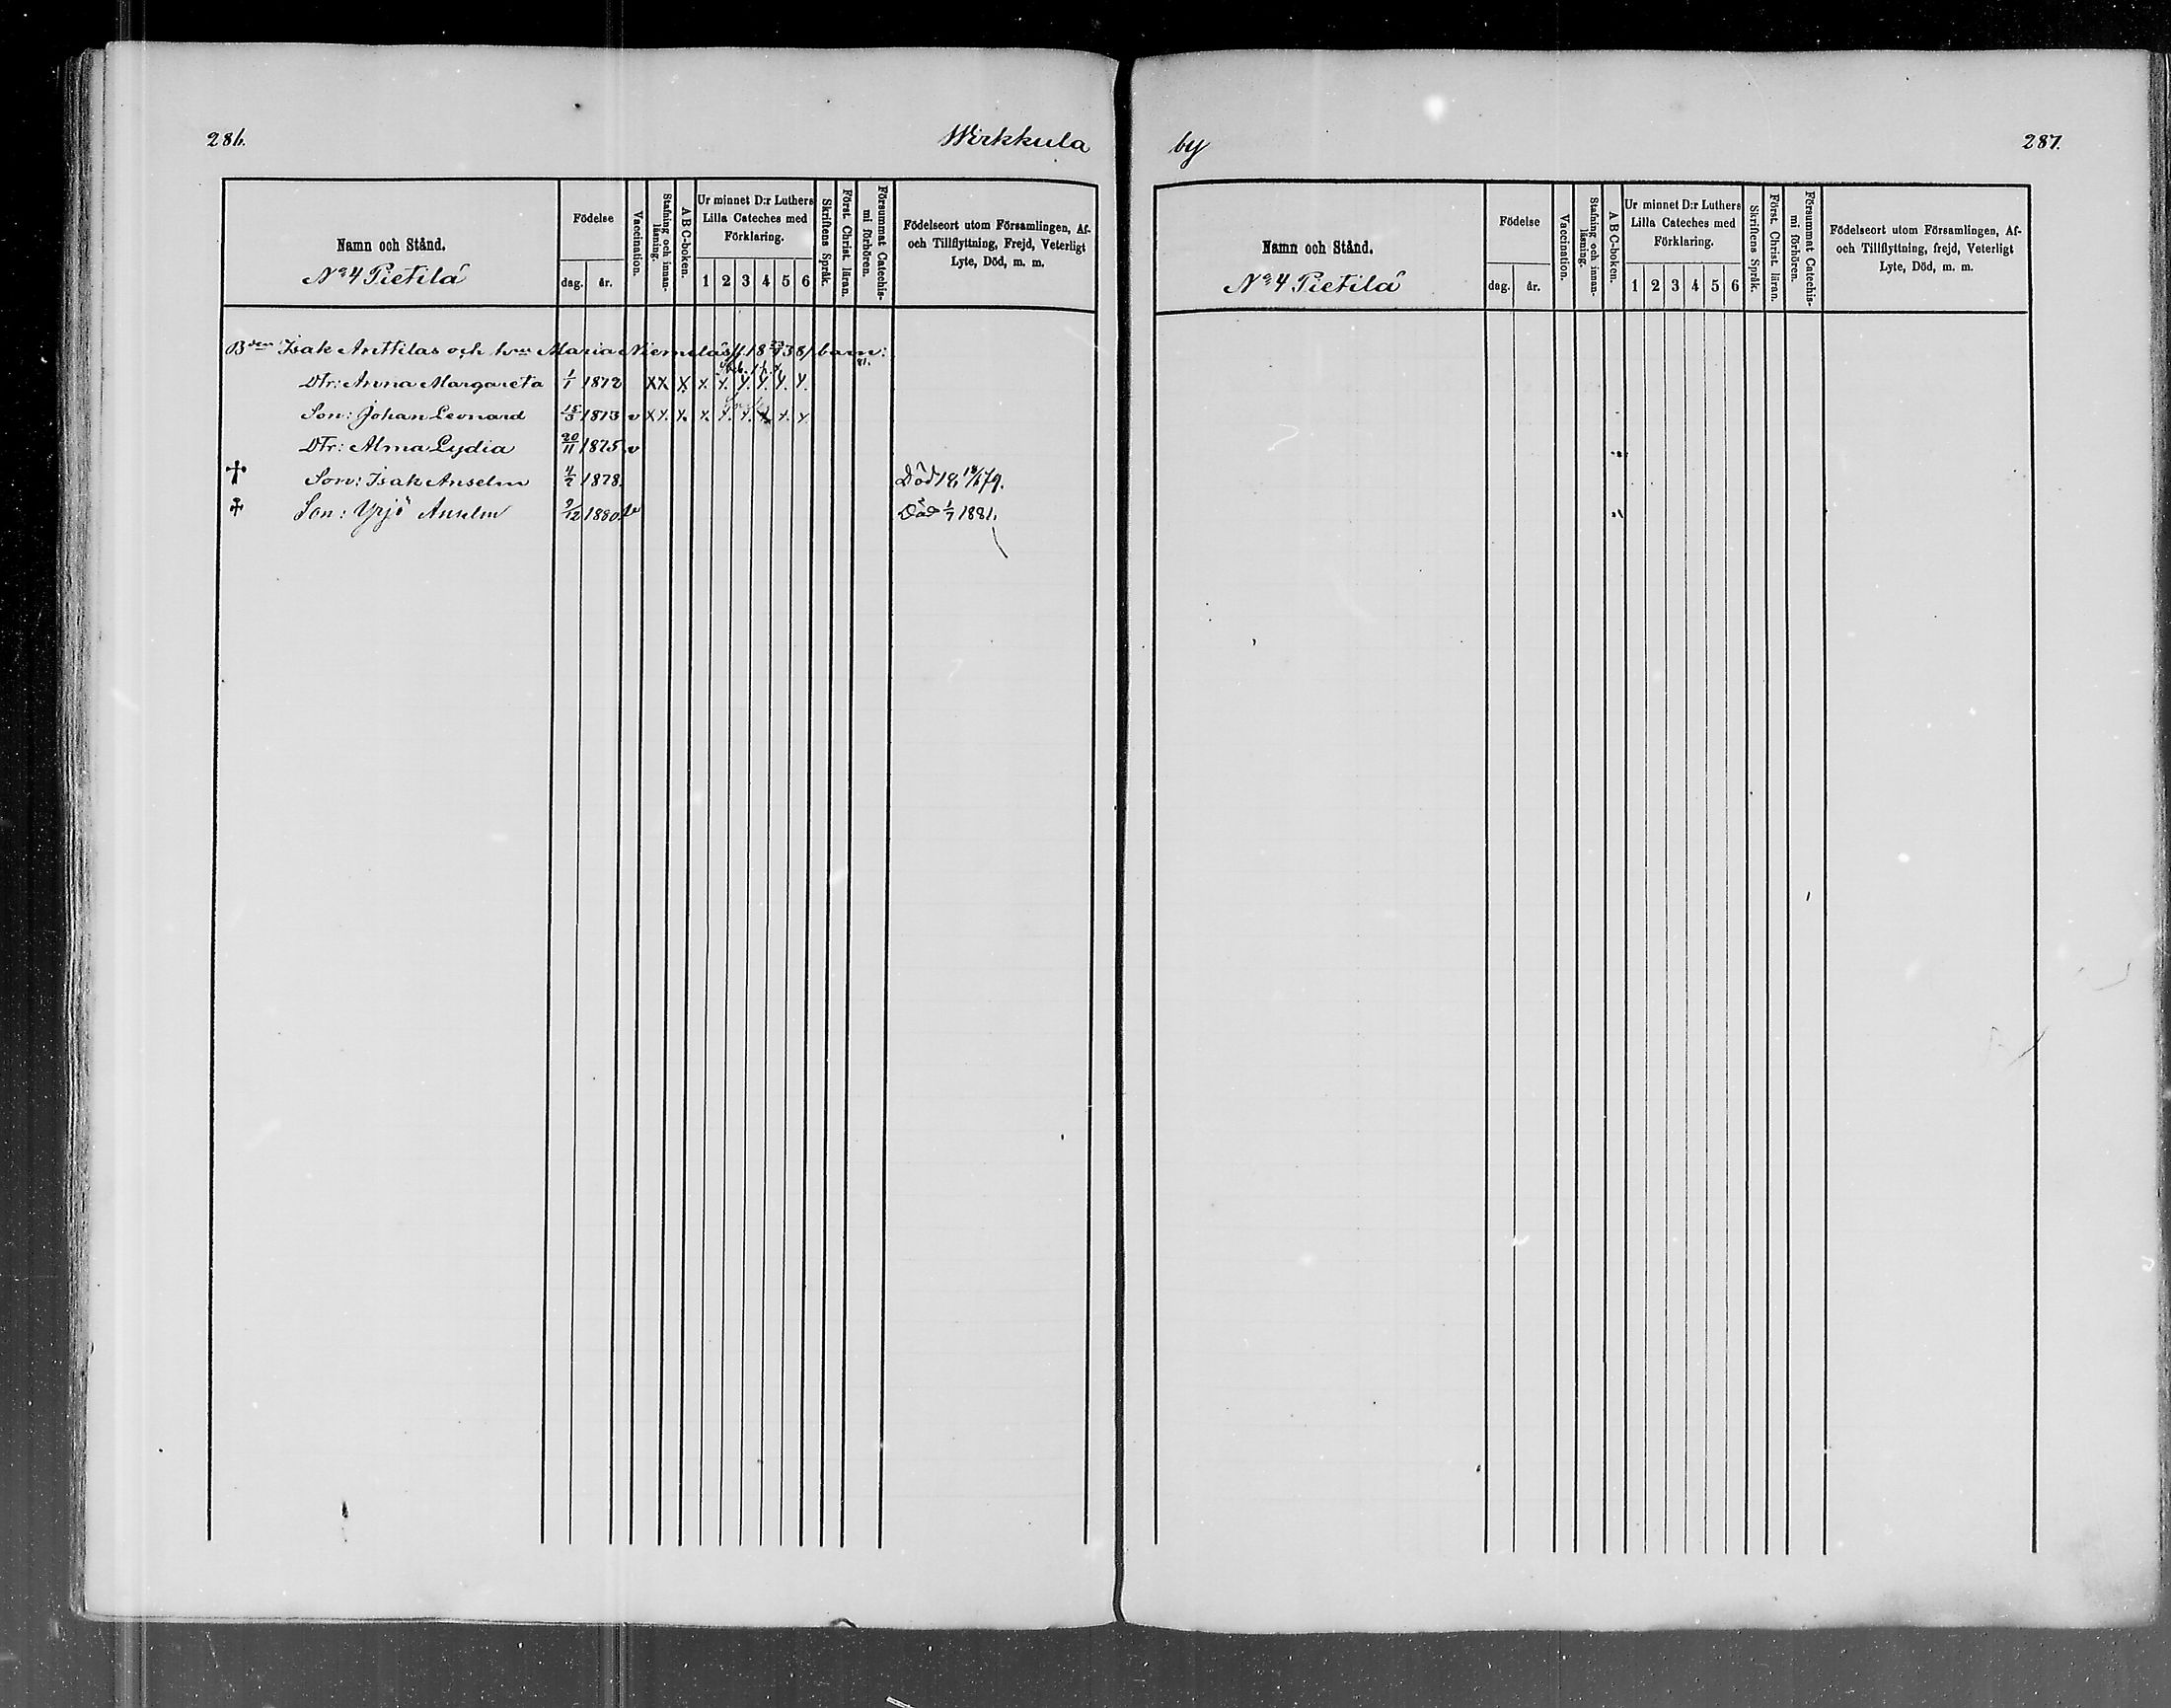 286.
Wirkkula
Namn och Stånd.
No 4 Pietilä
Födelse
dag. år.
Vaccination.
Stafning och innan-läsning.
A B C-boken.
Ur minnet D:r Luthers
Lilla Cateches med
Förklaring.
1 2 3 4 5 6
Skriftens Språk.
Först. Christ. läran.
Försummat Catechis-
mi förhören.
Födelseort utom Församlingen, Af-
och Tillflyttning, Frejd, Veterligt
Lyte, Död, m. m.
Bden Isak Anttilas och hus Maria Niemeläs barn:
81.
Dtr: Anna Margareta 1/1 1872 X X X x x x x x x
Son: Johan Leonard 15/3 1873 v x x x x x x x x x
Dtr: Alma Lydia 20/11 1875 v
† Son: Isak Anselm 4/2 1878. Död
† Son: Yrjö Anselm 9/12 1880 v Död 1/7 1881.
by
287.
Namn och Stånd.
No 4 Pietilä
Födelse
dag. år.
Vaccination.
Stafning och innan-läsning.
A B C-boken.
Ur minnet D:r Luthers
Lilla Cateches med
Förklaring.
1 2 3 4 5 6
Skriftens Språk.
Först. Christ. läran.
Försummat Catechis-
mi förhören.
Födelseort utom Församlingen, Af-
och Tillflyttning, frejd, Veterligt
Lyte, Död, m. m.